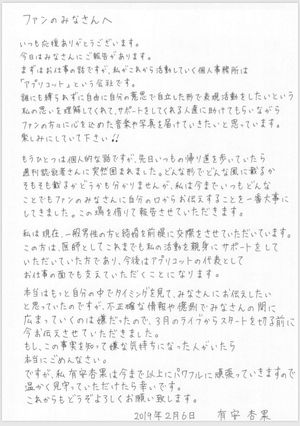 ファンのみなさんへ
いつも応援ありがとうございます。
今日はみなさんにご報告があります。
まずはお仕事の話ですが、私がこれから活動していく個人事務所は
「アプリコット」という会社です。
誰にも縛られずに自由に自分の意思で自立した形で表現活動をしたいという
私の思いを理解してくれて、サポートをしてくれる人達に助けてもらいながら
ファンの方々に心を込めた音楽や写真を届けていきたいと思っています。
楽しみにしていて下さい!!
もうひとつは個人的な話ですが、先日いつもの帰り道を歩いていたら
週刊誌記者さんに突然囲まれました。どんな形でどんな風に載るか
そもそも載るかどうかも分かりませんが、私は今までいつもどんな
ことでもファンのみなさんに自分の口からお伝えすることを一番大事に
してきました。この場を借りて報告させていただきます。
私は現在、一般男性の方と結婚を前提に交際をさせていただいています。
この方は、医師としてこれまでも私の活動を親身にサポートをして
いただいていた方であり、今後はアプリコットの代表として
お仕事の面でも支えていただくことになります。
本当はもっと自分の中でタイミングを見て、みなさんにお伝えしたい
と思っていたのですが、不正確な情報や憶測でみなさんの間に
広まっていくのは嫌だったので、3月のライブからスタートを切る前に
今お伝えさせていただきました。
もし、この事実を知って嫌な気持ちになった人がいたら
本当にごめんなさい。
ですが、私 有安杏果は今まで以上にパワフルに頑張っていきますので
温かく見守っていただけたら幸いです。
これからもどうぞよろしくお願い致します。
2019年2月6日 有安 杏果